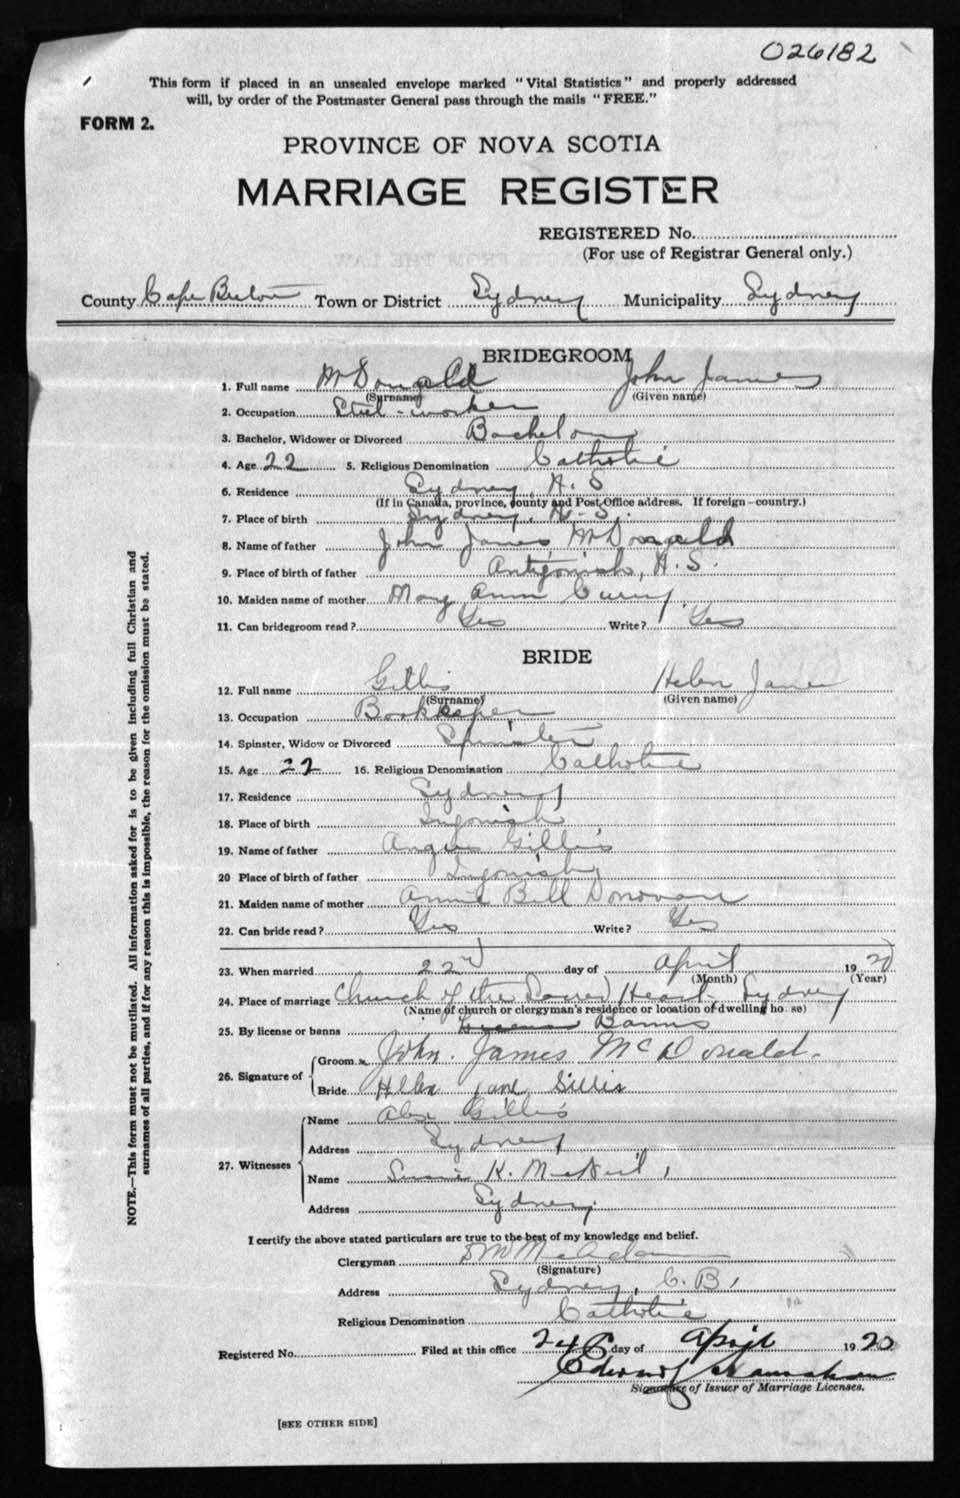 026182
This form if placed in an unsealed envelope marked "Vital Statistics" and properly addressed
will, by order of the Postmaster General pass through the mails "FREE."
FORM 2.
PROVINCE OF NOVA SCOTIA
MARRIAGE REGISTER
REGISTERED No.
(For use of Registrar General only.)
County Cape Breton Town or District Sydney Municipality Sydney
BRIDEGROOM
1. Full name McDonald John James
(Surname) (Given name)
2. Occupation Steel-worker
3. Bachelor, Widower or Divorced Bachelor
4. Age 22 5. Religious Denomination Catholic
6. Residence Sydney, N.S
(If in Canada, province, county and Post Office address. If foreign—country.)
7. Place of birth Sydney, N.S.
8. Name of father John James McDonald
9. Place of birth of father Antigonish, N.S.
10. Maiden name of mother Mary Ann Curry
11. Can bridegroom read? Yes Write? Yes
BRIDE
12. Full name Gillis Helen Jane
(Surname) (Given name)
13. Occupation Bookkeeper
14. Spinster, Widow or Divorced Spinster
15. Age 22 16. Religious Denomination Catholic
17. Residence Sydney
18. Place of birth Ingonish
19. Name of father Angus Gillis
20 Place of birth of father Ingonish
21. Maiden name of mother Annie Bell Donovan
22. Can bride read? Yes Write? Yes
23. When married 22nd day of April 1920
(Month) (Year)
24. Place of marriage Church of the Sacred Heart, Sydney
(Name of church or clergyman's residence or location of dwelling house)
25. By license or banns Banns
26. Signature of Groom John James McDonald.
Bride Helen Jane Gillis
27. Witnesses
Name Alex Gillis
Address Sydney
Name K. MacNeil
Address Sydney.
I certify the above stated particulars are true to the best of my knowledge and belief.
Clergyman McAdam
(Signature)
Address Sydney, C.B.
Religious Denomination Catholic
Registered No. Filed at this office 24 day of April 1920
Edward
Signature of Issuer of Marriage Licenses.
[SEE OTHER SIDE]
NOTE.—This form must not be mutilated. All information asked for is to be given including full Christian and
surnames of all parties, and if for any reason this is impossible, the reason for the omission must be stated.